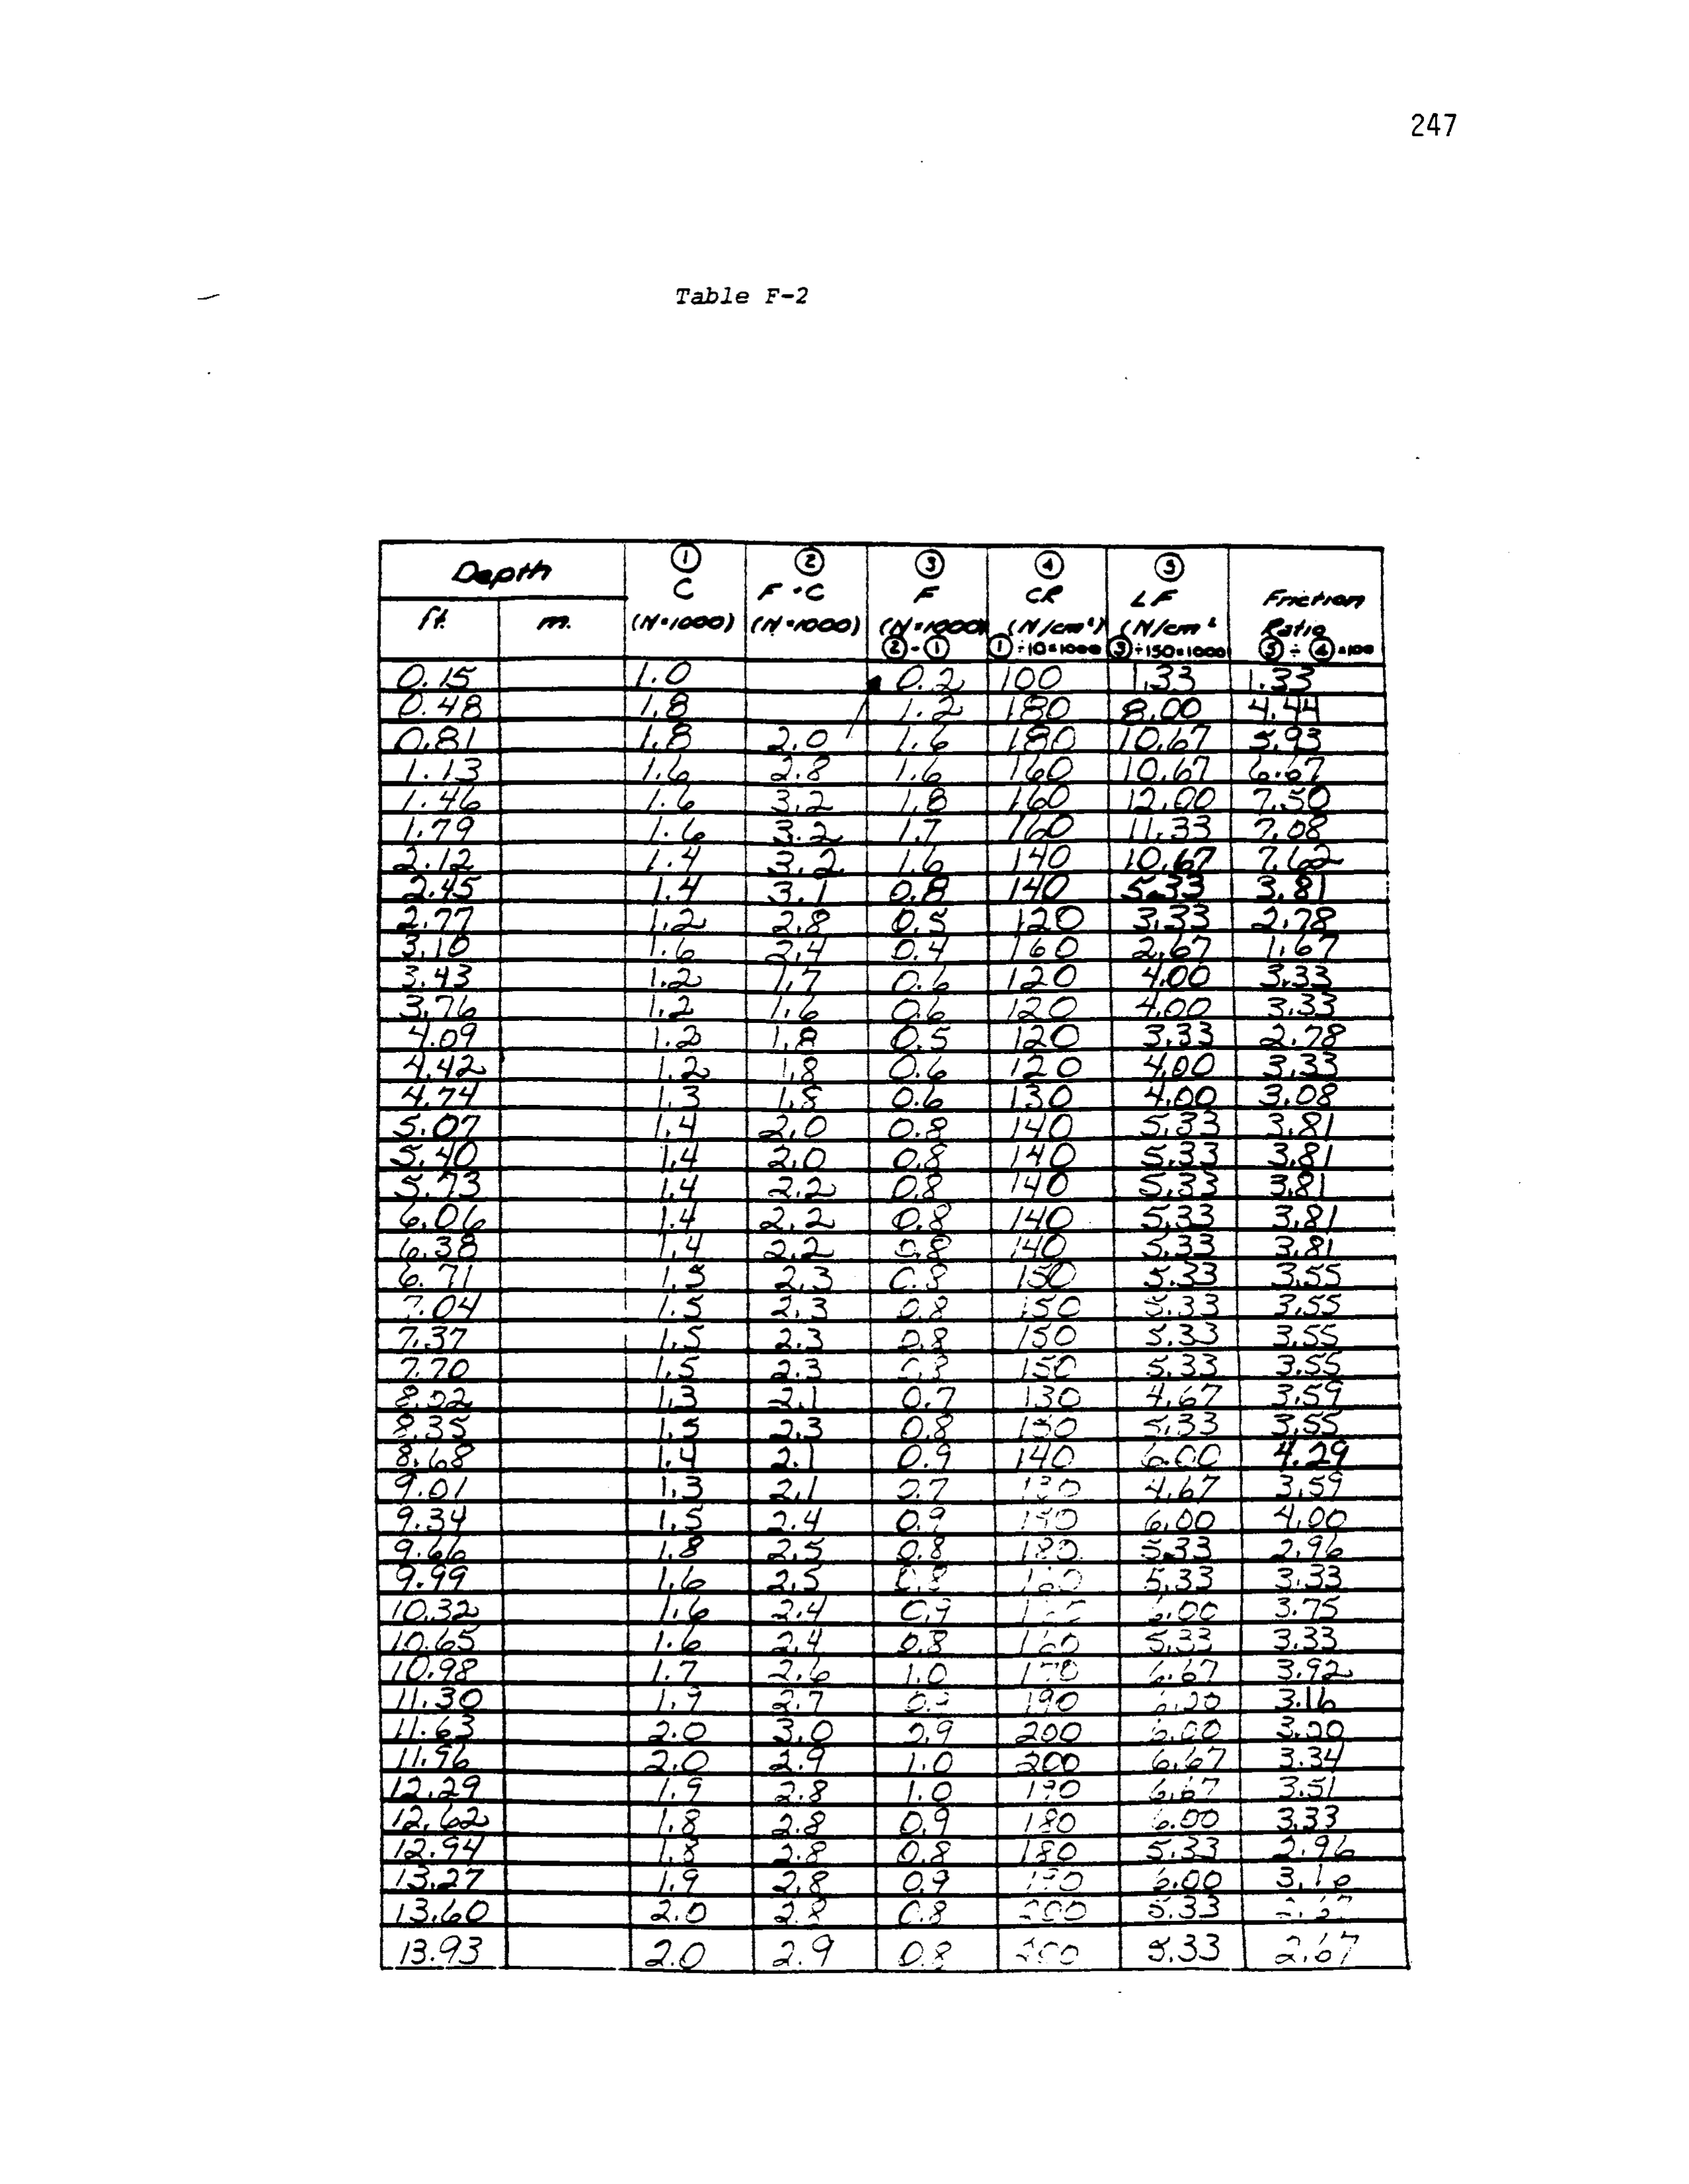 247
Table F-2
Depth ① C ② F+C ③ F ④ CR ⑤ LF Friction Ratio
ft. m. (N×1000) (N×1000) (N×1000) (N/cm²) (N/cm²
②-① ①÷10×1000 ③÷150×1000 ⑤÷④×100
0.15 1.0 0.2 100 1.33 1.33
0.48 1.8 1.2 180 8.00 4.44
0.81 1.8 2.0 1.6 180 10.67 5.93
1.13 1.6 2.8 1.6 160 10.67 6.67
1.46 1.6 3.2 1.8 160 12.00 7.50
1.79 1.6 3.2 1.7 160 11.33 7.08
2.12 1.4 3.2 1.6 140 10.67 7.62
2.45 1.4 3.1 0.8 140 5.33 3.81
2.77 1.2 2.8 0.5 120 3.33 2.78
3.10 1.6 2.4 0.4 160 2.67 1.67
3.43 1.2 1.7 0.6 120 4.00 3.33
3.76 1.2 1.6 0.6 120 4.00 3.33
4.09 1.2 1.8 0.5 120 3.33 2.78
4.42 1.2 1.8 0.6 120 4.00 3.33
4.74 1.3 1.8 0.6 130 4.00 3.08
5.07 1.4 2.0 0.8 140 5.33 3.81
5.40 1.4 2.0 0.8 140 5.33 3.81
5.73 1.4 2.2 0.8 140 5.33 3.81
6.06 1.4 2.2 0.8 140 5.33 3.81
6.38 1.4 2.2 0.8 140 5.33 3.81
6.71 1.5 2.3 0.8 150 5.33 3.55
7.04 1.5 2.3 0.8 150 5.33 3.55
7.37 1.5 2.3 0.8 150 5.33 3.55
7.70 1.5 2.3 0.8 150 5.33 3.55
8.02 1.3 2.1 0.7 130 4.67 3.59
8.35 1.5 2.3 0.8 150 5.33 3.55
8.68 1.4 2.1 0.9 140 6.00 4.29
9.01 1.3 2.1 0.7 130 4.67 3.59
9.34 1.5 2.4 0.9 150 6.00 4.00
9.66 1.8 2.5 0.8 180 5.33 2.96
9.99 1.6 2.5 0.8 160 5.33 3.33
10.32 1.6 2.4 0.9 6.00 3.75
10.65 1.6 2.4 0.8 160 5.33 3.33
10.98 1.7 2.6 1.0 170 6.67 3.92
11.30 1.9 2.7 190 3.16
11.63 2.0 3.0 0.9 200 6.00 3.00
11.96 2.0 2.9 1.0 200 6.67 3.34
12.29 1.9 2.8 1.0 190 6.67 3.51
12.62 1.8 2.8 0.9 180 6.00 3.33
12.94 1.8 2.8 0.8 180 5.33 2.96
13.27 1.9 2.8 0.9 190 6.00 3.16
13.60 2.0 2.8 0.8 200 5.33
13.93 2.0 2.9 0.8 200 5.33 2.67